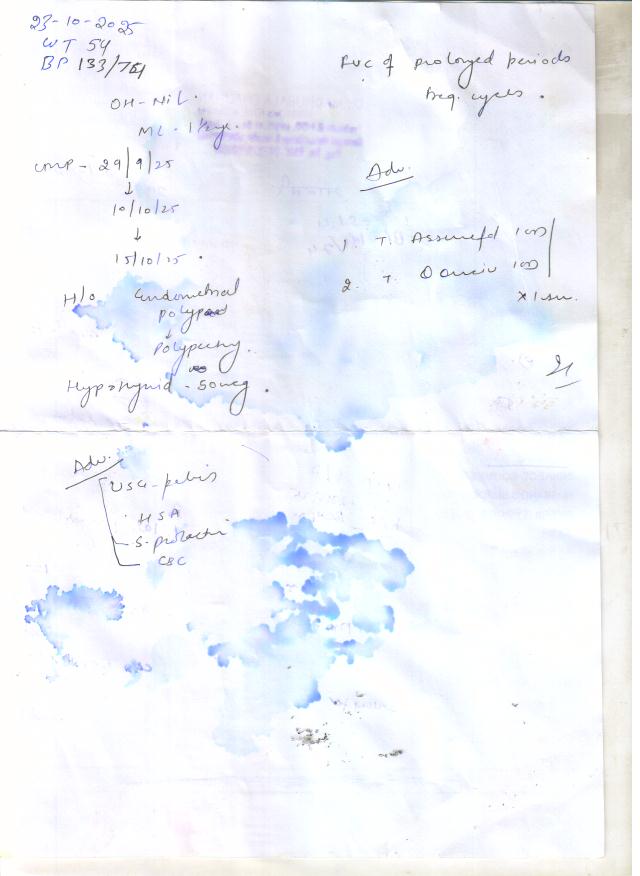 23-10-2025
WT 54
BP 133/764
FUC of prolonged periods
freq. cycles.
OH - Nil.
ML - 1 1/2 yr.
LMP - 29/9/25
↓
10/10/25
↓
15/10/25.
H/o Endometrial
polyp
↓
Polypectmy.
Hypothyroid - 50mcg.
Adv.
1. T.
2. T.
2/
Adv.
USG - pelvis
HSA
S. prolactin
CBC